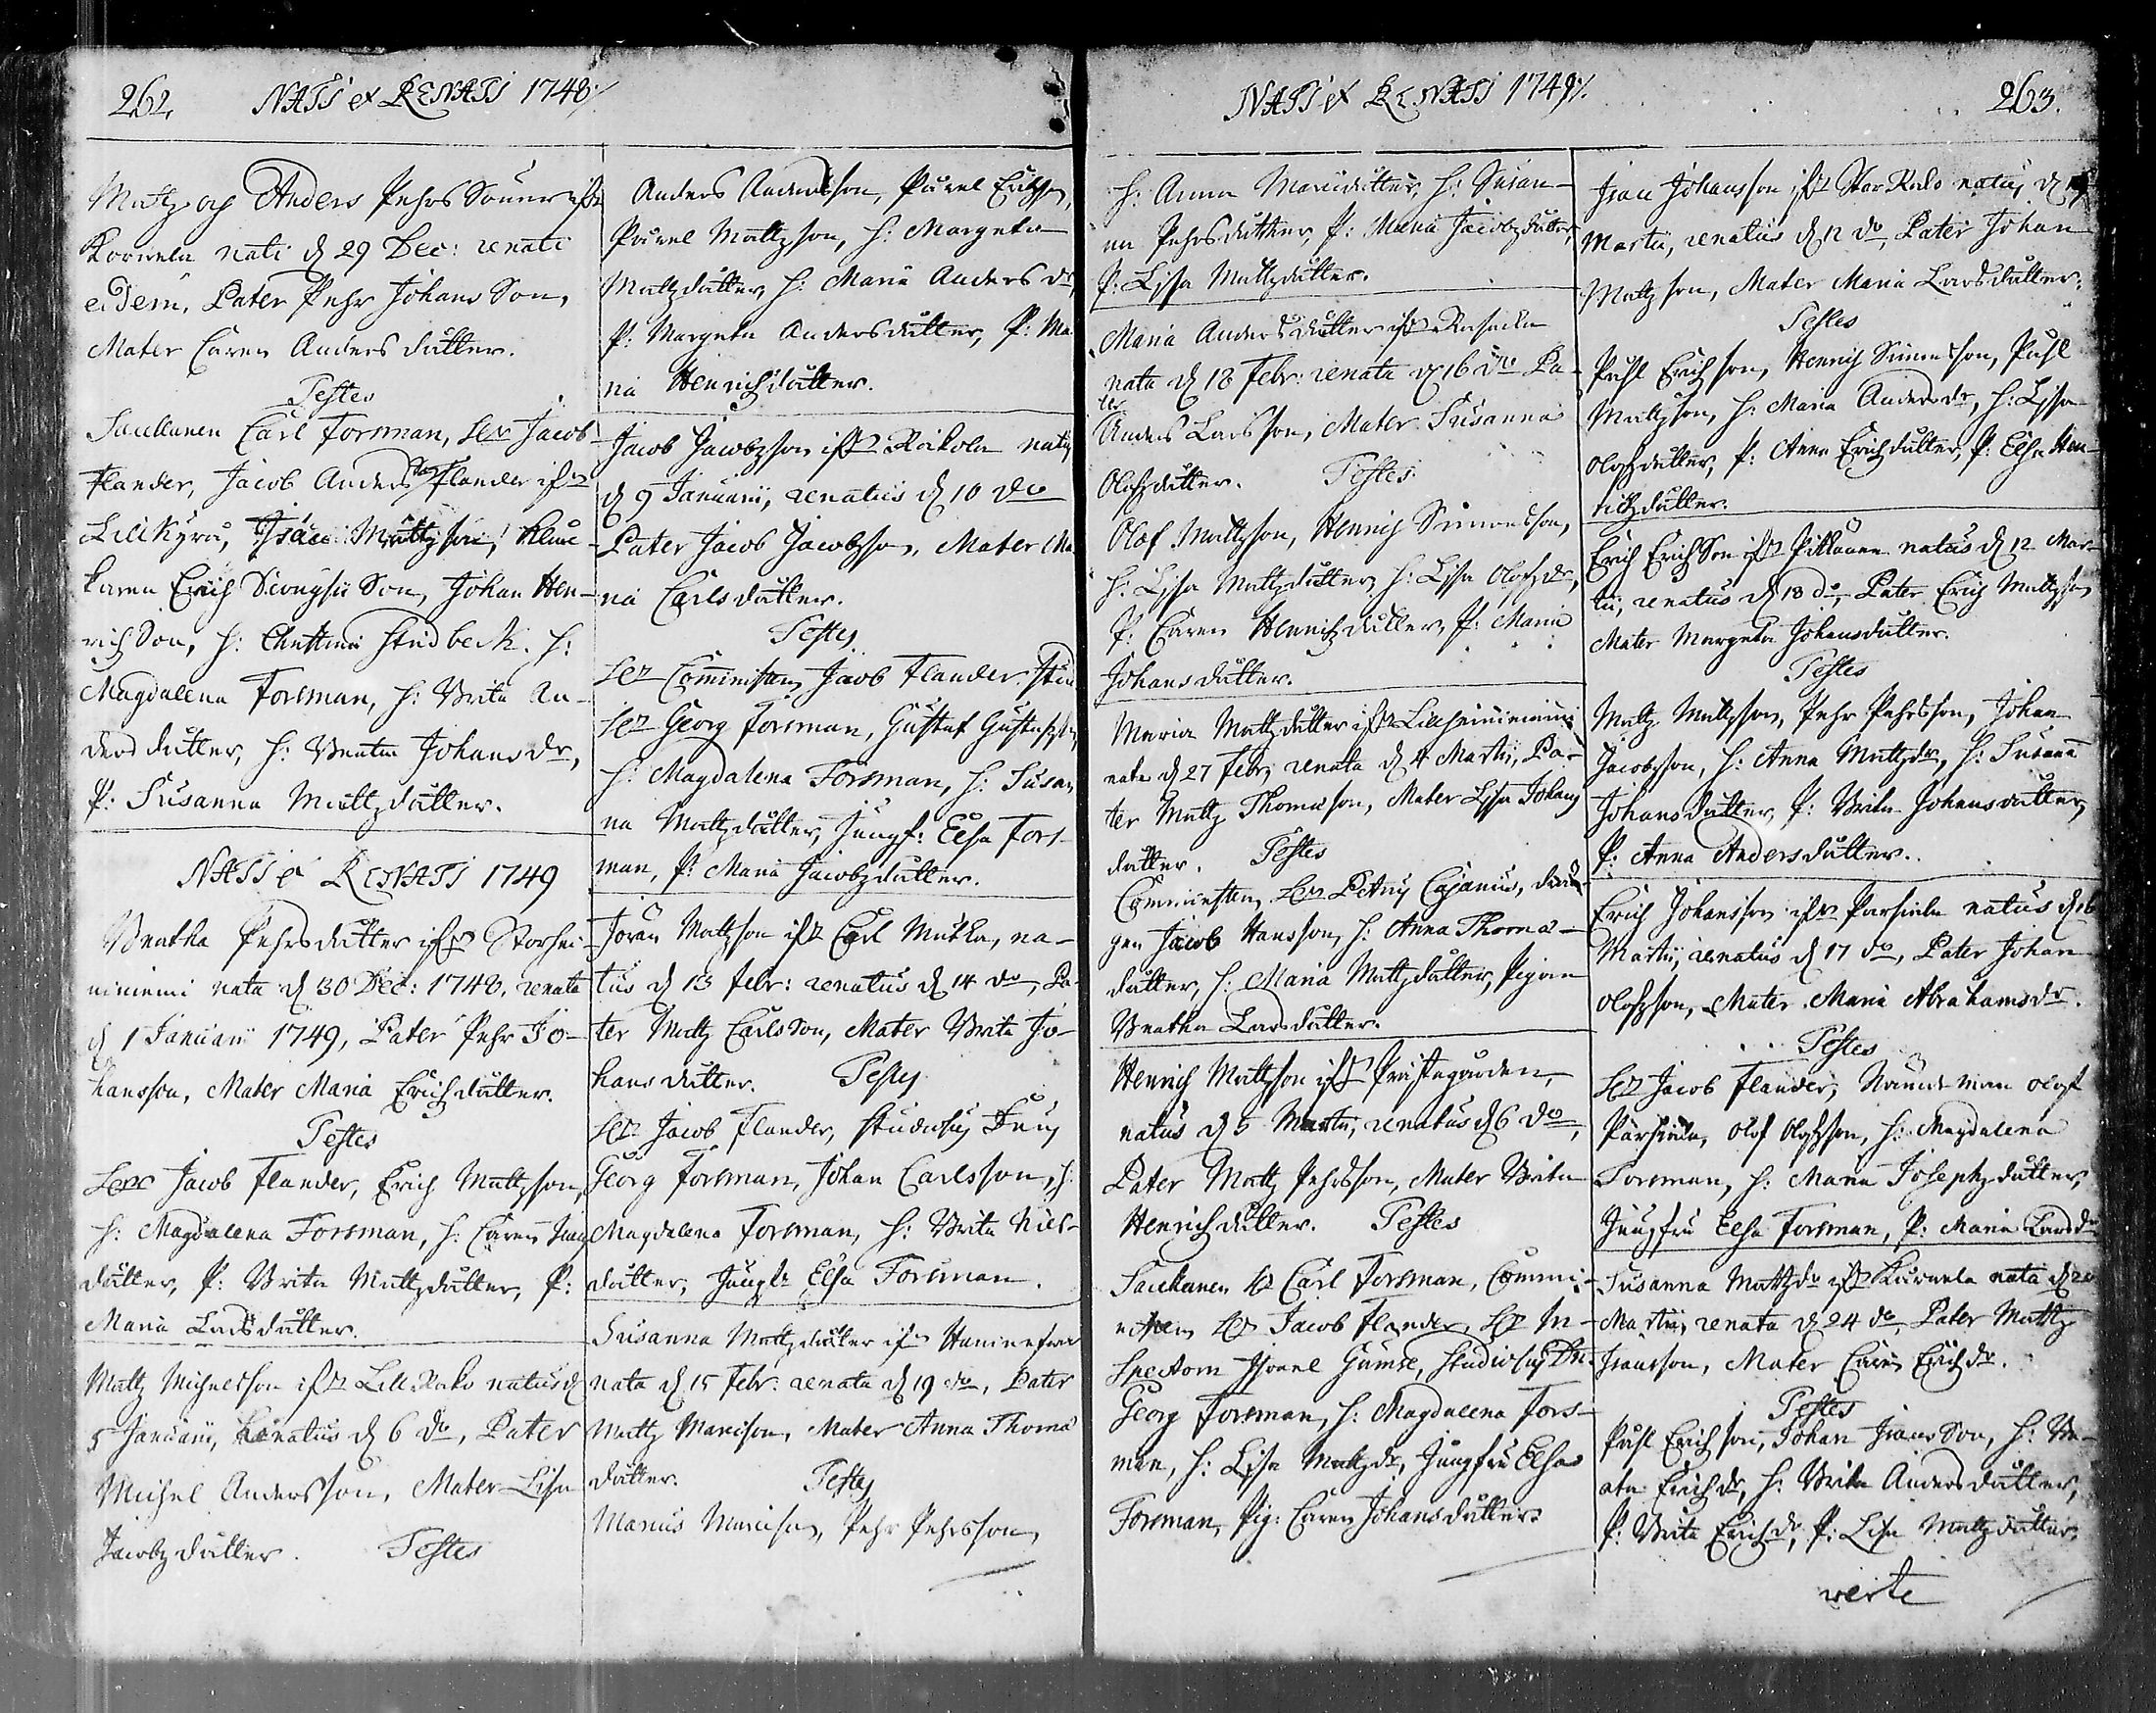 262. NATI et RENATI 1748
Mattz och Anders Pehrs Söner ifrå
Korvela nati d 29 Dec: renati
eidem, Pater Pehr Johans Son,
Mater Caren Anders dutter.
Testes
Sacellanen Carl Forsman, Hr Jacob
Flander, Jacob Anders Son Flander ifrån
Lillkyro, Isaac Mattzson,
Erich Son, Johan Hen-
richSon, h: Christina Stidbeck. h:
Magdalena Forsman, h: Brita An-
dersdutter, h: Beata Johansdr,
P: Susanna Mattzdutter.
NATI et RENATI 1749
Beatha Pehrsdutter ifrå Storhei-
nieniemi nata d 30 Dec: 1748, renata
d 1 Januarii 1749, Pater Pehr Jo-
hansson, Mater Maria Erichdutter.
Testes
Hr Jacob Flander, Erich Mattzson,
h: Magdalena Forsman, h: Caren
dutter, P: Brita Mattzdutter, P:
Maria Larsdutter.
Mattz Michelsson ifrå Lill Röko natus d
5 Januarii, Renatus d 6 do, Pater
Michel Andersson, Mater Lisa
Jacobzdutter. Testes
Anders Andersson, Påvel Erichsson,
Påvel Mattzson, h: Margeta
Mattzdutter, h: Maria Andersdr,
P: Margeta Andersdutter, P: Ma-
ria Henrichdutter.
Jacob Jacobzson ifrå Raikola natus
d 9 Januarii, renatus d 10 do
Pater Jacob Jacobzson, Mater Ma-
ria Carlsdutter.
Testes
Hr Comministern Jacob Flander, Stud
Hr Georg Forsman, Gustaf Gustafzson,
h: Magdalena Forsman, h: Susan
na Mattzdutter, Jungf: Elsa Fors-
man, P: Maria Jacobzdutter.
Jöran Mattzson ifrå Carl Mutka, na-
tus d 13 febr: renatus d 14 do, Pa-
ter Mattz CarlsSon, Mater Brita Jo-
hansdutter. Testes
Hr Jacob Flander, Studiosus Dnus
Georg Forsman, Johan Carlsson, h:
Magdalena Forsman, h: Brita Nils-
dutter, Jungfr Elsa Forsman.
Susanna Mattzdutter ifrå
nata d 15 febr: renata d 19 do, Pater
Mattz Marcison, Mater Anna Thomæ
dutter. Testes
Marcus Marcison, Pehr Pehrsson,
NATI et RENATI 1749. 263.
h: Anna Marcidutter, h: Susan-
na Pehrsdutter, P: Maria Jacobzdutter,
P: Lisa Mattzdutter.
Maria Andersdutter ifrå
nata d 18 Febr: renata d 16 do Pa-
ter
Anders Larsson, Mater Susanna
Olofzdutter. Testes
Olof Mattzson, Henrich Simonsson,
h: Lisa Mattzdutter, h: Lisa Olofzdr,
P: Caren Henrichdutter, P: Maria
Johansdutter.
Maria Mattzdutter ifrå Lillheinieniemi
nata d 27 febr, renata d 4 Martii, Pa-
ter Mattz Thomæson, Mater Lisa Johans
dutter. Testes
Comministern Hr Petrus Cajanus, drän-
gen Jacob Hansson, h: Anna Thomæ-
dutter, h: Maria Mattzdutter, Pigan
Beatha Larsdutter.
Henrich Mattzson ifrå Prästegården,
natus d 5 Martii, renatus d 6 do,
Pater Mattz Pehrsson, Mater Brita
Henrichdutter. Testes
Sacellanen Hr Carl Forsman, Commi-
nistern Hr Jacob Flander, Hr In-
Spectorn Gumse, Studiosus Dn.
Georg Forsman, h: Magdalena Fors-
man, h: Lisa Mattzdr, Jungfru Elsa
Forsman, Pig: Caren Johansdutter.
Isac Johansson ifrå Stor Röko natus d
Martii, renatus d 12 do, Pater Johan
Mattzson, Mater Maria Larsdutter.
Testes
Påhl Erichson, Henrich Simonsson, Påhl
Mattzson, h: Maria Andersdr, h: Lisa
Olofzdutter, P: Anna Erichdutter, P: Elsa Hen-
richdutter.
Erich ErichSon ifrå natus d 12 Mar-
tii, renatus d 18 do, Pater Erich Mattzson
Mater Margeta Johansdutter.
Testes
Mattz Mattzson, Pehr Pehrsson, Johan
Jacobzson, h: Anna Mattzdr, h: Susana
Johansdutter, P: Brita Johansdutter,
P: Anna Andersdutter.
Erich Johansson ifrå Parhiala natus d 16
Martii, renatus d 17 do, Pater Johan
Olofzson, Mater Maria Abrahamsdr.
Testes
Hr Jacob Flander, Nämndeman Olof
Parhiala, Olof Olofzson, h: Magdalena
Forsman, h: Maria Josephzdutter,
Jungfru Elsa Forsman, P: Maria Larsdr
Susanna Mattzdr ifrå Kurvela nata d 20
Martii, renata d 24 do, Pater Mattz
Isacsson, Mater Caren Erichdr.
Testes
Påhl Erichson, Johan IsacsSon, h: Be-
ata Erichdr, h: Brita Andersdutter,
P: Brita Erichdr, P: Lisa Mattzdutter.
verte